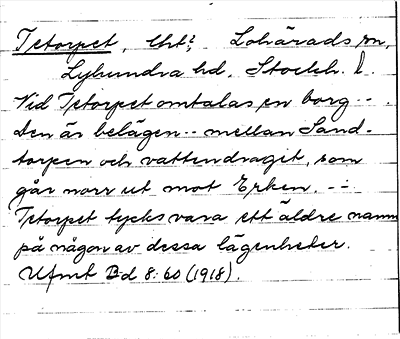 Tetorpet, lht?, Lohärads sn,
Lyhundra hd, Stockh. l.
Vid Tetorpet omtalas en borg - - .
Den är belägen - - mellan Sand-
torpen och vattendraget, som
går norr ut mot Erken. - -
Tetorpet tycks vara ett äldre namn
på någon av dessa lägenheter.
Ufmt Bd 8: 60 (1918).